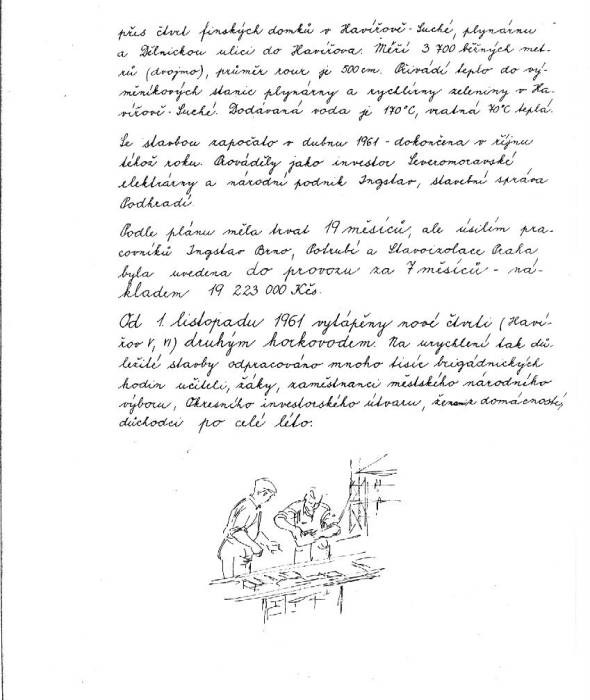 přes čtvrt finských domků v Havířově-Suché, plynárnu
a Dělnickou ulici do Havířova. Měří 3 700 běžných met-
rů (dvojmo), průměr rour je 500 cm. Přivádí teplo do vý-
měníkových stanic plynárny a rychlírny zeleniny v Ha-
vířově-Suché. Dodávaná voda je 170°C, vratná 70°C teplá.
Se stavbou započato v dubnu 1961 - dokončena v říjnu
téhož roku. Prováděly jako investor Severomoravské
elektrárny a národní podnik Ingstav, stavební správa
Podhradí.
Podle plánu měla trvat 19 měsíců, ale úsilím pra-
covníků Ingstav Brno, Potrubí a Stavoizolace Praha
byla uvedena do provozu za 7 měsíců - ná-
kladem 19 223 000 Kčs.
Od 1. listopadu 1961 vytápěny nové čtvrti (Haví-
řov V, VI) druhým horkovodem. Na urychlení tak dů-
ležité stavby odpracováno mnoho tisíc brigádnických
hodin učiteli, žáky, zaměstnanci městského národního
výboru, Okresního investorského útvaru, žen z domácností,
důchodci po celé léto.